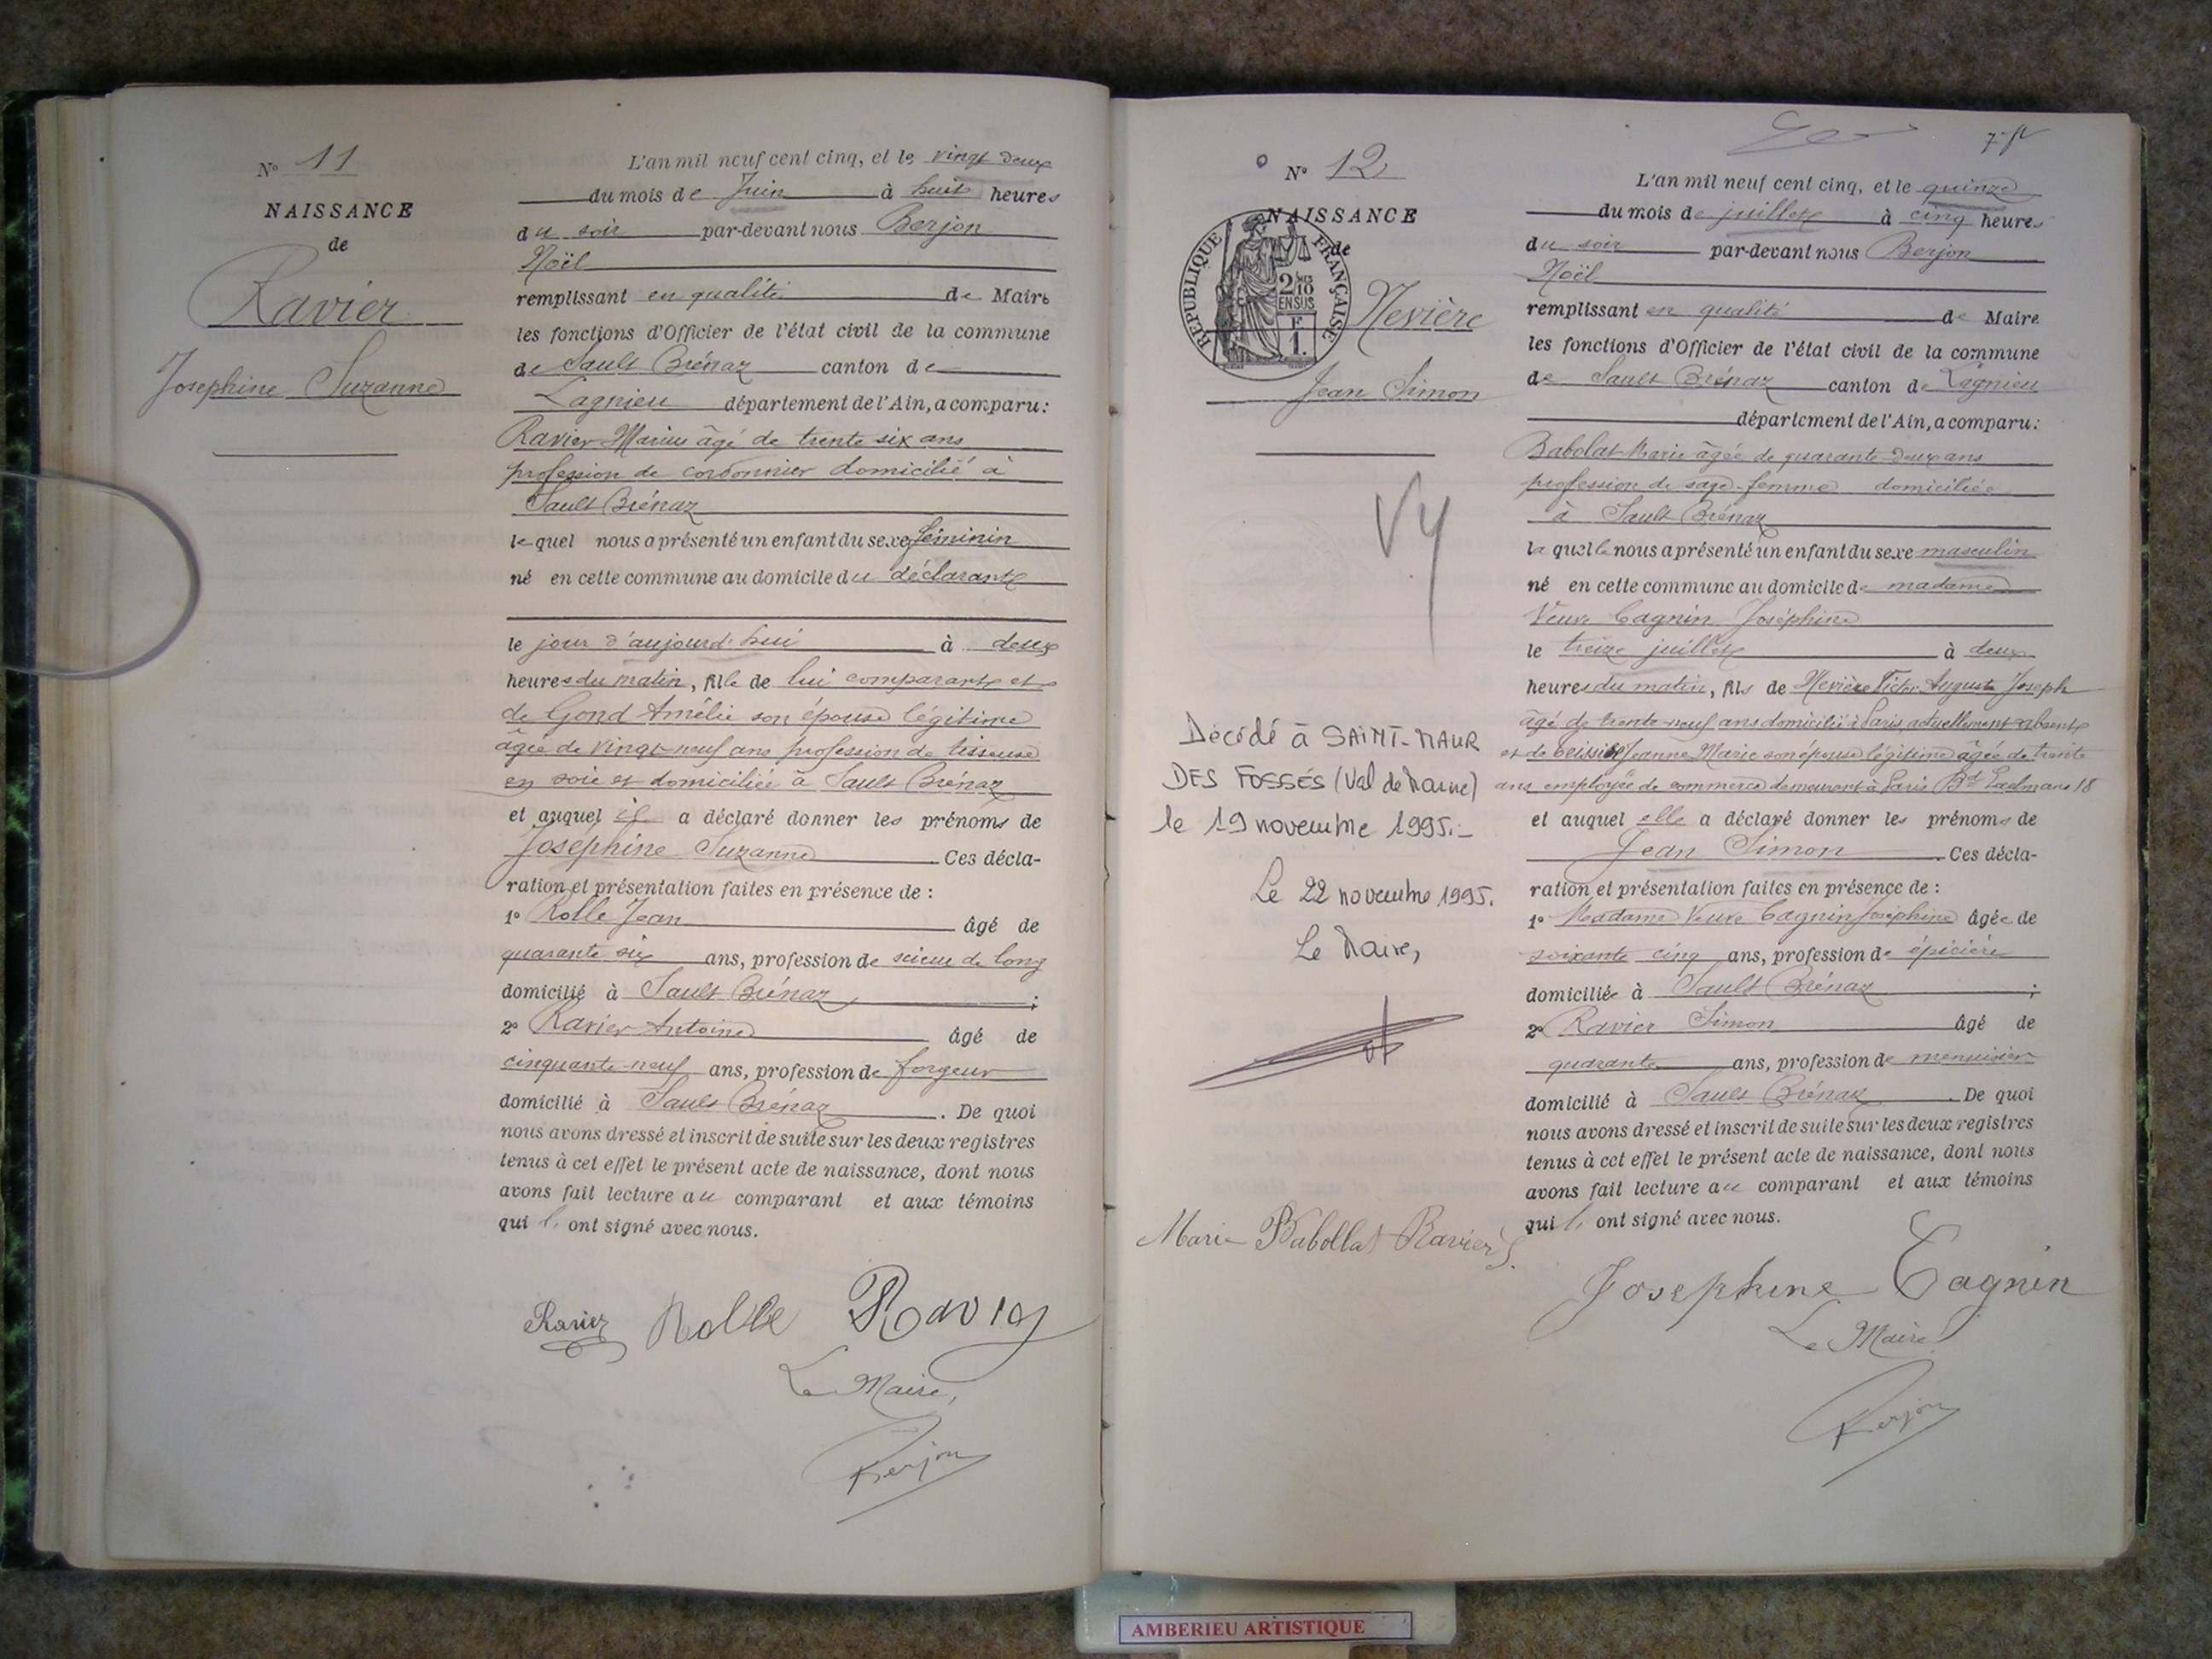 N° 11
NAISSANCE
de
Ravier
Josephine Suzanne
L'an mil neuf cent cinq, et le vingt deux
du mois de Juin à huit heures
du soir par-devant nous Berjon
Noël
remplissant en qualité de Maire
les fonctions d'Officier de l'état civil de la commune
de Sault Brénaz canton de
Lagnieu département de l'Ain, a comparu:
Ravier Marius âgé de trente six ans
profession de cordonnier domicilié à
Sault Brénaz
lequel nous a présenté un enfant du sexe féminin
né en cette commune au domicile du déclarant
le jour d'aujourd'hui à deux
heures du matin, fille de lui comparant et
de Gond Amélie son épouse légitime
âgée de vingt-neuf ans profession de tisseuse
en soie et domiciliée à Sault Brénaz
et auquel il a déclaré donner les prénoms de
Joséphine Suzanne Ces décla-
ration et présentation faites en présence de :
1° Rolle Jean âgé de
quarante six ans, profession de scieur de long
domicilié à Sault Brénaz ;
2° Ravier Antoine âgé de
cinquante-neuf ans, profession de forgeur
domicilié à Sault Brénaz . De quoi
nous avons dressé et inscrit de suite sur les deux registres
tenus à cet effet le présent acte de naissance, dont nous
avons fait lecture au comparant et aux témoins
qui l' ont signé avec nous.
Ravier Rolle Ravier
Le Maire,
Berjon
N° 12
NAISSANCE
de
REPUBLIQUE FRANÇAISE
2/10
EN SUS
F
1.
Nevière
Jean Simon
Décédé à SAINT-MAUR
DES FOSSÉS (Val de Marne)
le 19 novembre 1995.-
Le 22 novembre 1995.
Le Maire,
L'an mil neuf cent cinq, et le quinze
du mois de juillet à cinq heures
du soir par-devant nous Berjon
Noël
remplissant en qualité de Maire
les fonctions d'Officier de l'état civil de la commune
de Sault Brénaz canton de Lagnieu
département de l'Ain, a comparu:
Babolat Marie âgée de quarante-deux ans
profession de sage-femme domiciliée
à Sault Brénaz
laquelle nous a présenté un enfant du sexe masculin
né en cette commune au domicile de madame
Veuve Cagnin Joséphine
le treize juillet à deux
heures du matin, fils de Nevière Victor Auguste Joseph
âgé de trente-neuf ans domicilié à Paris, actuellement absent
et de Jeanne Marie son épouse légitime âgée de trente
ans employée de commerce demeurant à Paris Bd 18
et auquel elle a déclaré donner les prénoms de
Jean Simon . Ces décla-
ration et présentation faites en présence de :
1° Madame Veuve Cagnin Joséphine âgée de
soixante cinq ans, profession de épicière
domiciliée à Sault Brénaz ;
2° Ravier Simon âgé de
quarante ans, profession de menuisier
domicilié à Sault Brénaz . De quoi
nous avons dressé et inscrit de suite sur les deux registres
tenus à cet effet le présent acte de naissance, dont nous
avons fait lecture au comparant et aux témoins
qui l' ont signé avec nous.
Marie Babollat Ravier S.
Josephine Cagnin
Le Maire
Berjon
AMBERIEU ARTISTIQUE